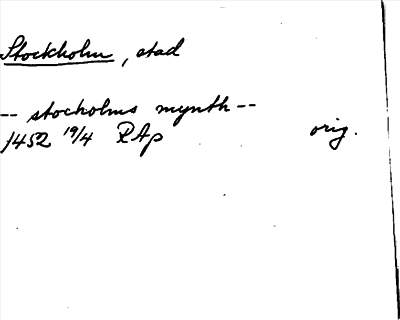 Stockholm, stad
-- stocholms mynth --
1452 19/4 RAp orig.